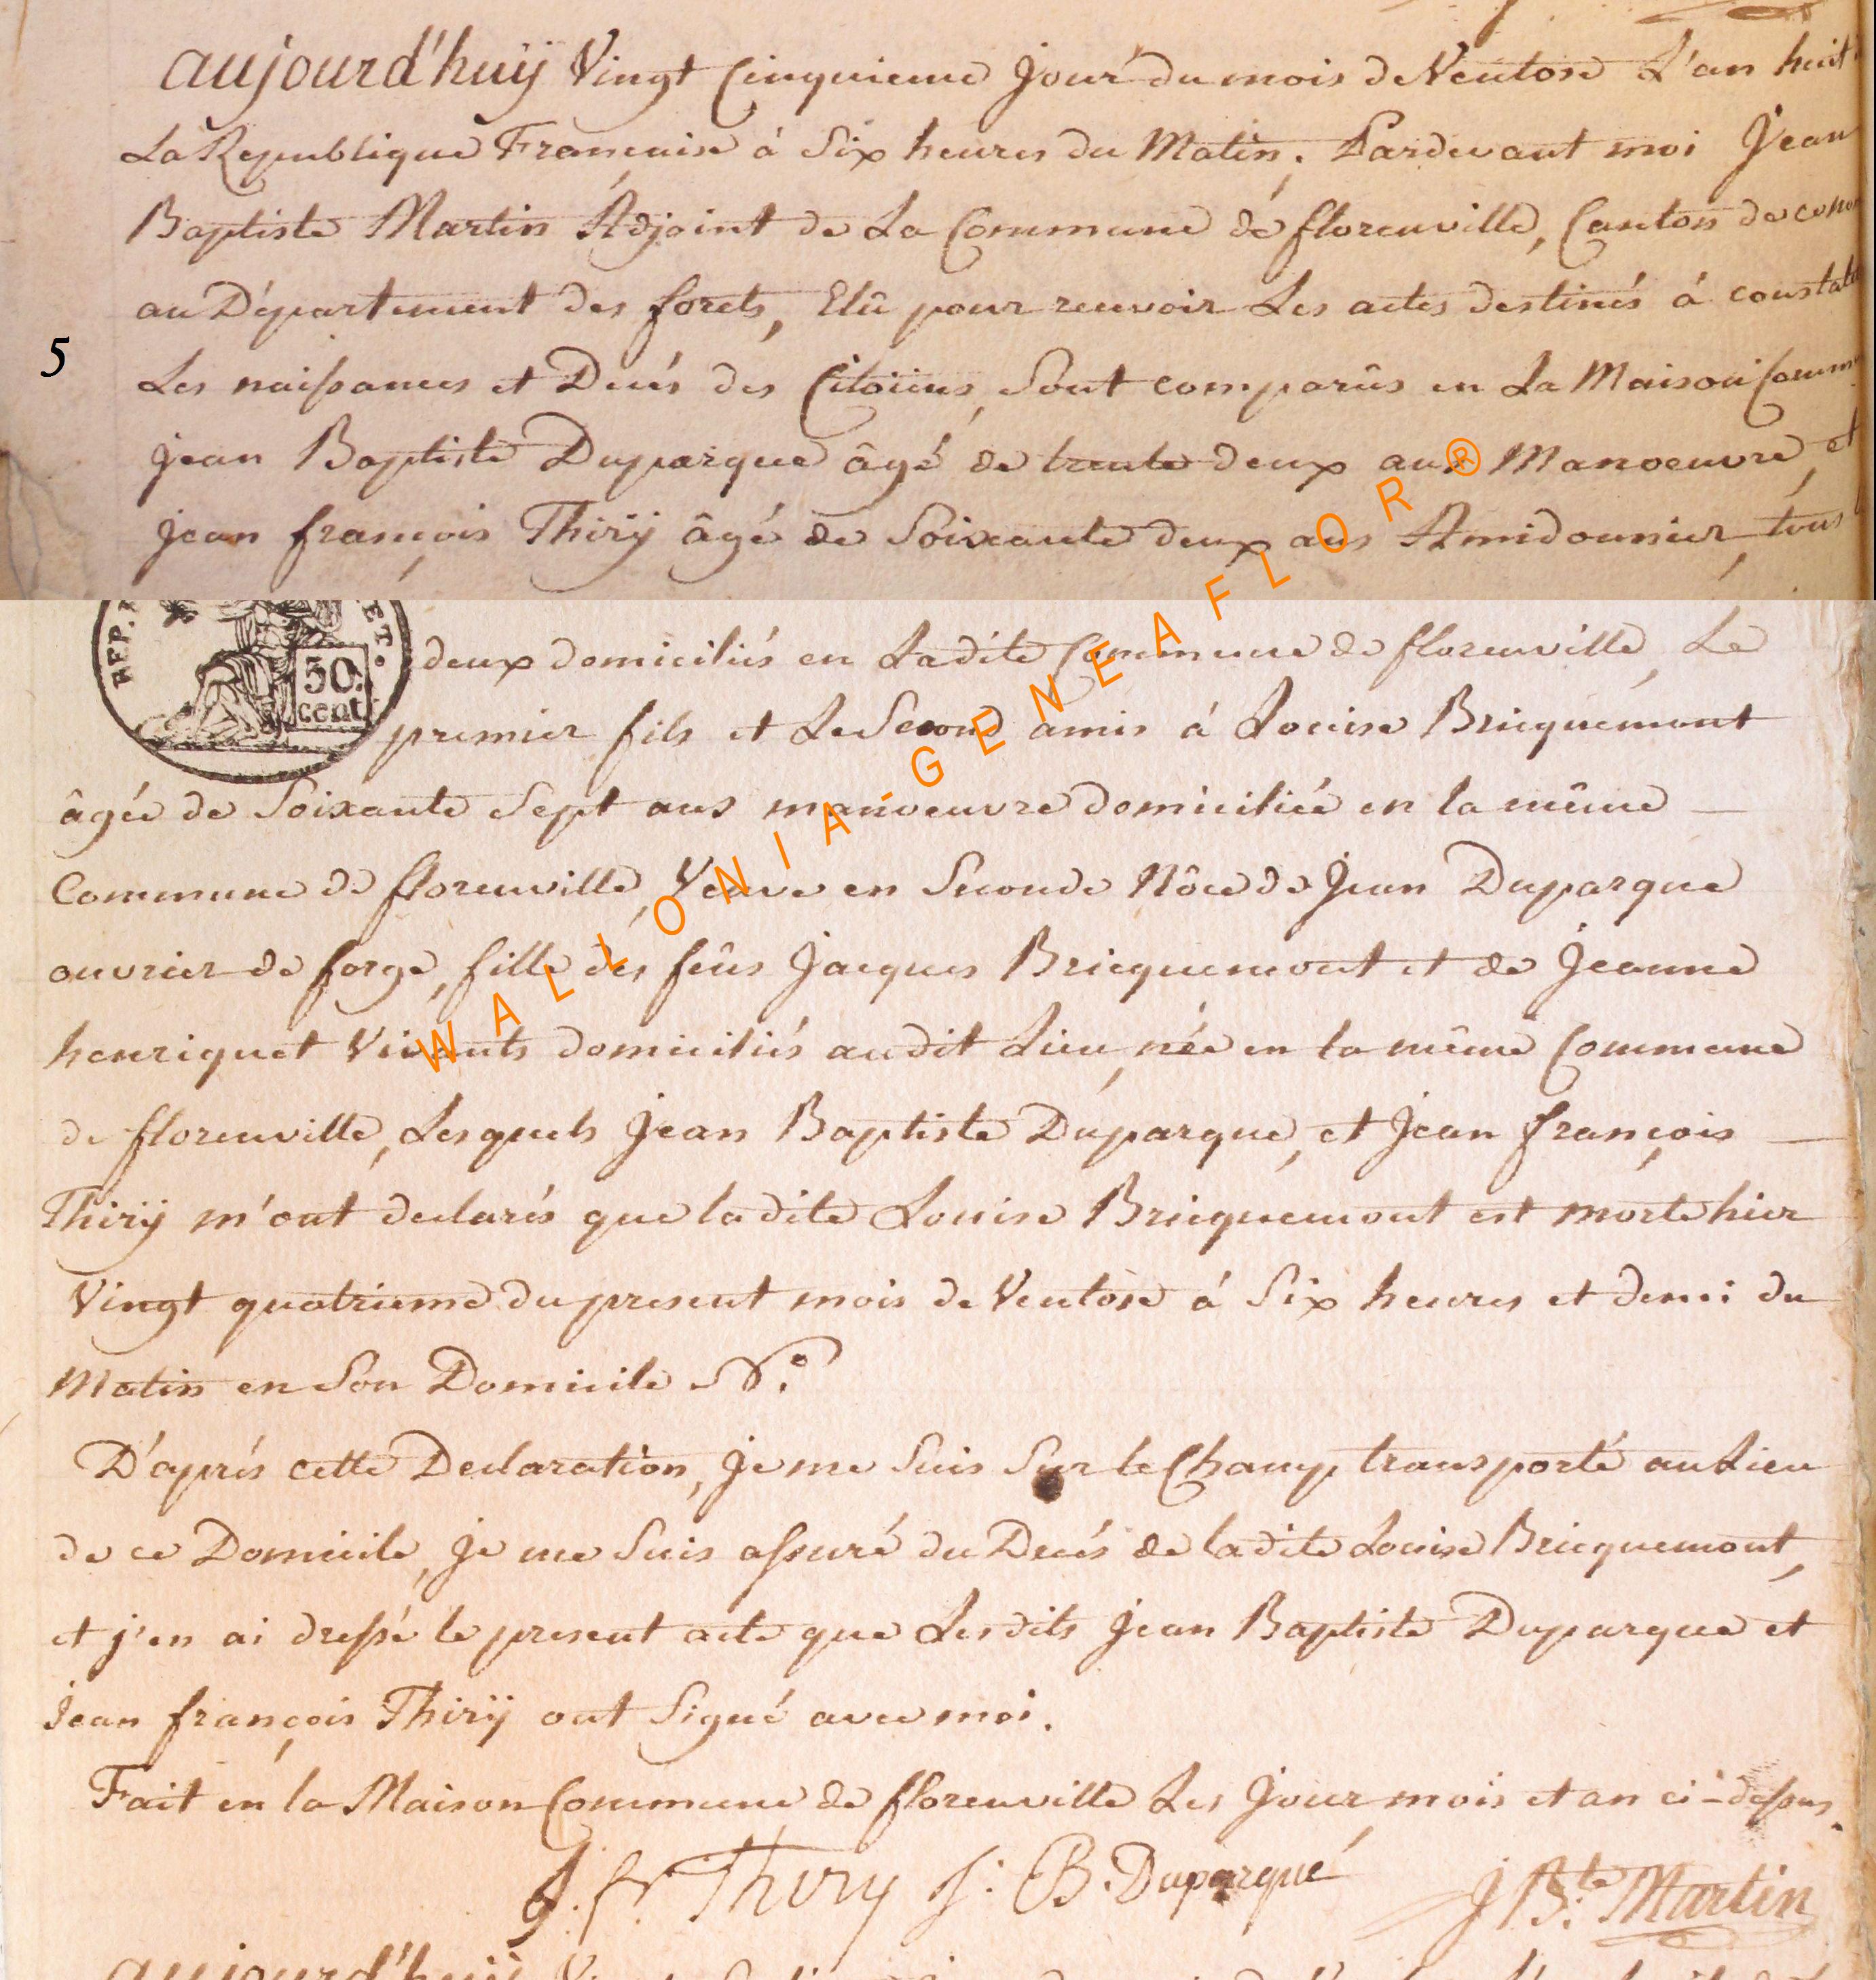 aujourd'huÿ Vingt Cinquieme Jour du mois de Ventose L'an huit
La Republique Francaise á Six heures du Matin. Pardevant moi Jean
Baptiste Martin Adjoint de La Commune de florenville, Canton de
au Département des forets, Elû pour recevoir Les actes destinés á constate
5
Les naissances et Decés des Citoïens, Sont comparûs en La Maison Comm
Jean Baptiste Duparque âgé de trente deux ans Manoeuvre, et
Jean françois Thirÿ âgé de Soixante deux ans Amidonnier, tous
REP.
ET.
30.
cent
deux domiciliés en Ladite Commune de florenville, Le
premier fils et Le Second amis á Louise Bricquemont
âgée de Soixante Sept ans manoeuvre domiciliée en la même —
Commune de florenville, Veuve en Seconde Nôce de Jean Duparque
ouvrier de forge, fille des feûs Jacques Bricquemont et de Jeanne
henriquet Vivants domiciliés audit Lieu, née en la même Commune
de florenville, Lesquels Jean Baptiste Duparque, et Jean françois —
Thirÿ m'ont declarés que ladite Louise Bricquemont est morte hier
Vingt quatrieme du present mois de Ventose á Six heures et demi du
Matin en Son Domicile N.°
D'aprés cette Declaration, Je me Suis Sur le Champ transporté au Lieu
de ce Domicile, Je me Suis assuré du Decés de ladite Louise Bricquemont,
et j'en ai dressé le present acte que Lesdits Jean Baptiste Duparque et
Jean françois Thirÿ ont Signé avec moi.
Fait en la Maison Commune de florenville Les Jour mois et an ci-dessus.
J. fr Thiry J: B. Duparqué
J Bte: Martin
aujourd'huÿ
WALLONIA-GENEAFLOR®